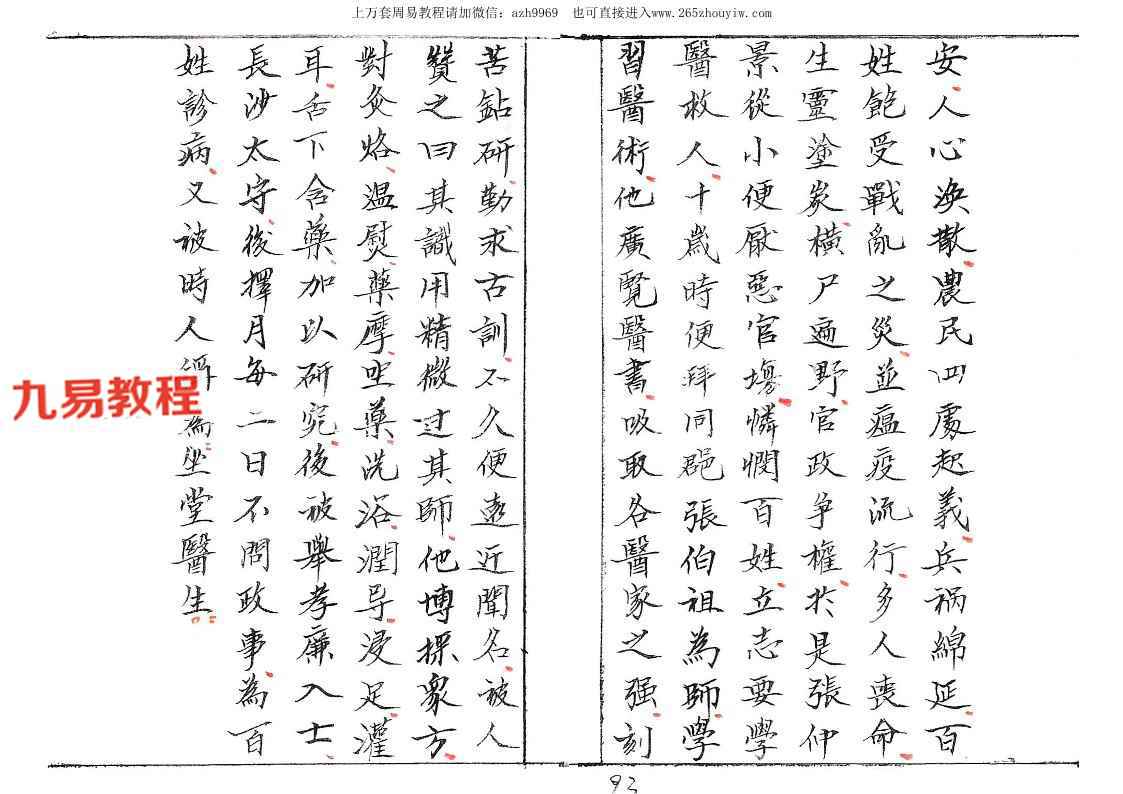 上万套周易教程请加微信：azh9969 也可直接进入www.265zhouyiw.com
安、人心渙散、農民四處起義、兵祸綿延、百
姓飽受戰亂之災、並瘟疫流行、多人喪命、
生靈塗炭、横尸遍野、官政争權、於是張仲
景從小便厭惡官場、憐憫百姓、立志要學
醫救人、十歲時便拜同郡張伯祖為師、學
習醫術、他廣覽醫書、吸取各醫家之强、刻
苦鉆研、勤求古訓、不久便遠近聞名、被人
贊之曰其識用精微过其師、他博採衆方、
對灸烙、温熨、藥摩、坐藥、洗浴、潤导、浸足、灌
耳、舌下含藥、加以研究、後被舉孝廉入士、
長沙太守、後擇月每二日不問政事、為百
姓診病、又被時人稱為坐堂醫生。
九易教程
92